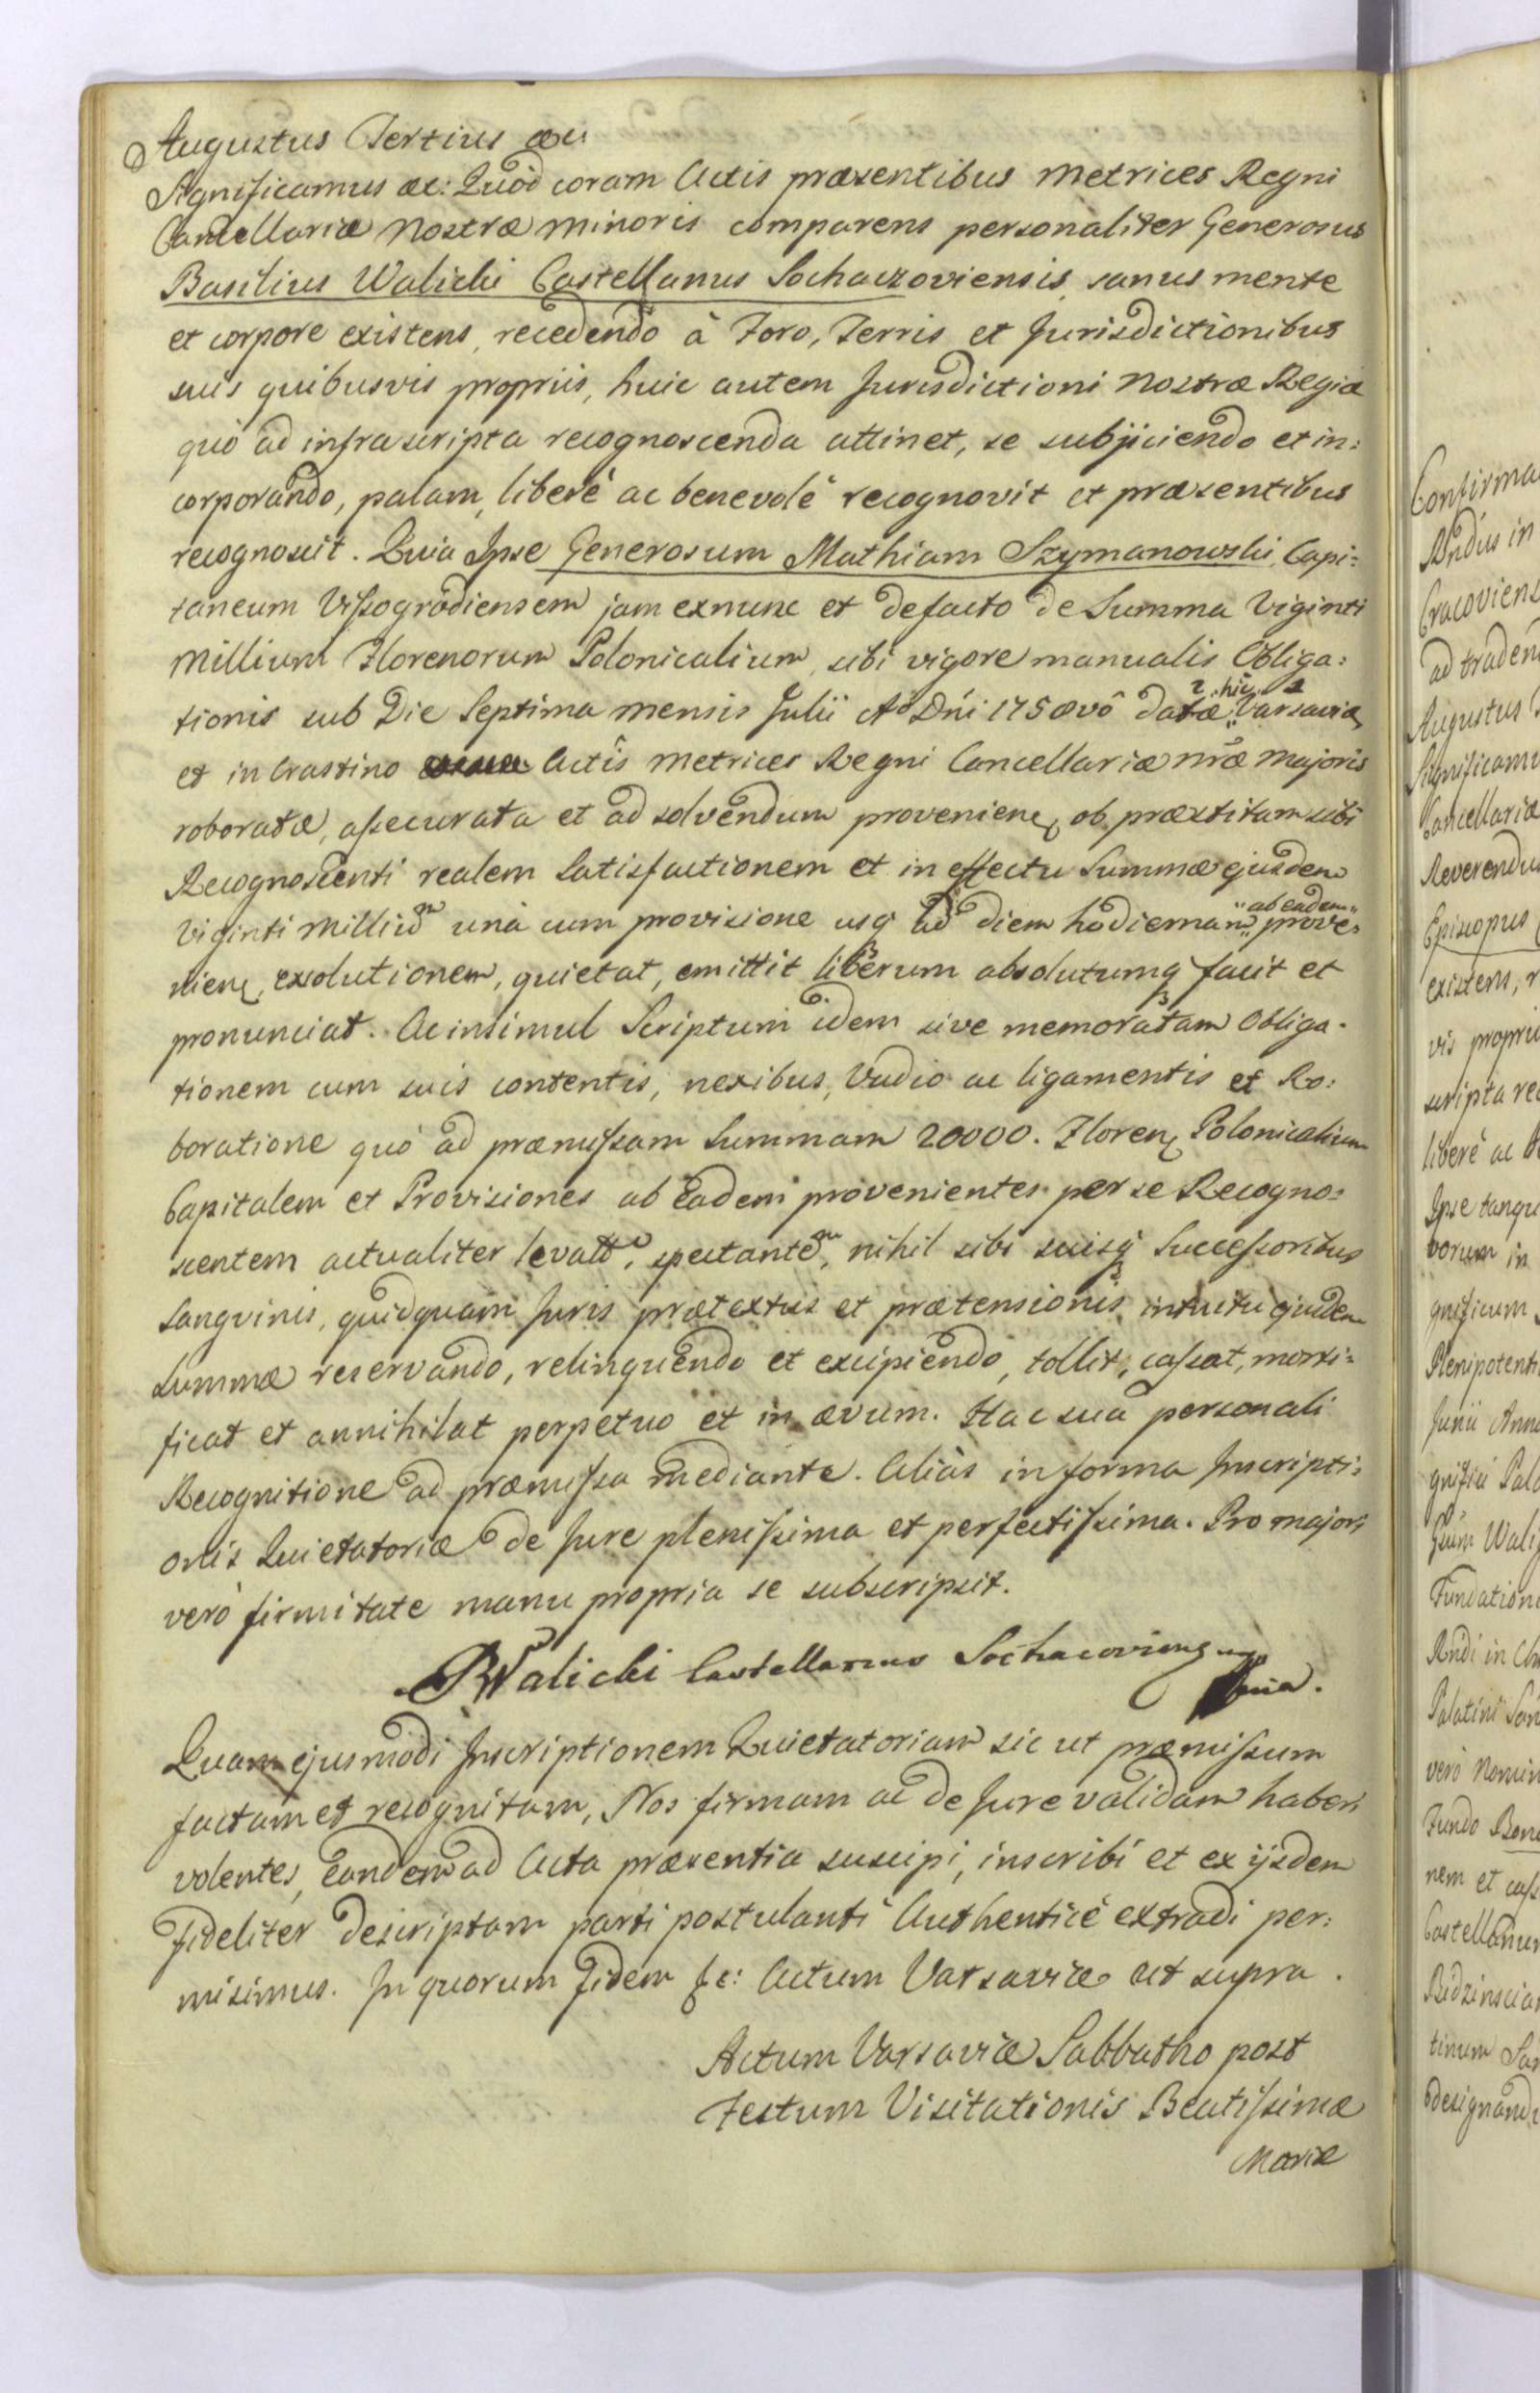 Augustus Tertius &c:
Significamus &c: Quod coram Actis præsentibus Metrices Regni
Cancellariæ Nostræ Minoris comparens personaliter Generosus
Basilius Walicki Castellanus Sochaczoviensis, sanus mente
et corpore existens, recedendo à Foro, Terris et Jurisdictionibus
suis quibusvis propriis, huic autem Jurisdictioni Nostræ Regiæ
quò ad infrascripta recognoscenda attinet, se subjiciendo et in:
corporando, palam, liberè ac benevolè recognovit et præsentibus
recognoscit. Quia Ipse Generosum Mathiam Szymanowski, Capi:
taneum Vissogrodiensem jam exnunc et defacto de Summa Viginti
Millium Florenorum Polonicalium, sibi vigore manualis Obliga:
tionis sub Die Septima mensis Julii Aō Dńi 175 datæ hic Varsaviæ
et in Crastino Actis Metrices Regni Cancellariæ nr̃æ Majoris
roboratæ, assecurata et ad solvendum provenien, ob præstitam sibi
Recognoscenti realem Satisfactionem et in effectu Summæ ejusdem
Viginti Milliũm unà cum provisione usq ad diem hodiernam "ab eadem" prove:
nien, exolutionem, quietat, emittit liberum absolutumq facit et
pronunciat. Ac insimul Scriptum idem sive memoratam Obliga.
tionem cum suis contentis, nexibus, Vadio ac ligamentis et Ro:
boratione quò ad præmissam Summam 20000. Floren Polonicalium
Capitalem et Provisiones ab Eadem provenientes per se Recogno:
scentem actualiter levatt, spectantem, nihil sibi suisq Successoribus
Sangvinis, quidquam Juris prætextus et prætensionis, intuitu ejusdem
Summæ reservando, relinquendo et excipiendo, tollit, cassat, morti:
ficat et annihilat perpetuo et in ævum. Hac sua personali
Recognitione ad præmissa mediante. Aliàs in forma Inscripti:
onis Quietatoriæ de Jure plenissima et perfectissima. Pro majori
verò firmitate manu propria se subscripsit.
BWalicki Castellanus Sochacoviens mpp
Quam ejusmodi Inscriptionem Quietatoriam sic ut præmissum
factam et recognitam, Nos firmam ac de Jure validam haberi
volentes, Eandem ad Acta præsentia suscipi, inscribi et ex ijsdem
fideliter descriptam parti postulanti Authenticè extradi per:
misimus. In quorum Fidem &c: Actum Varsaviæ ut supra.
Actum Varsaviæ Sabbatho post
Festum Visitationis Beatissimæ
Mariæ
Confirma
Cracoviens
ad traden
Augustus
Significamu
Cancellariæ
Reverendu
Episcopus
existens, r
vis propri
scripta rec
liberè ac
Ipse tanqu
vorum in
gnificum
Plenipotenti
Junii Anno
gnifici Pala
Fundation
Palatini San
verò Nomin
Fundo Bono
nem et cass
Castellanum
tinum San
designand